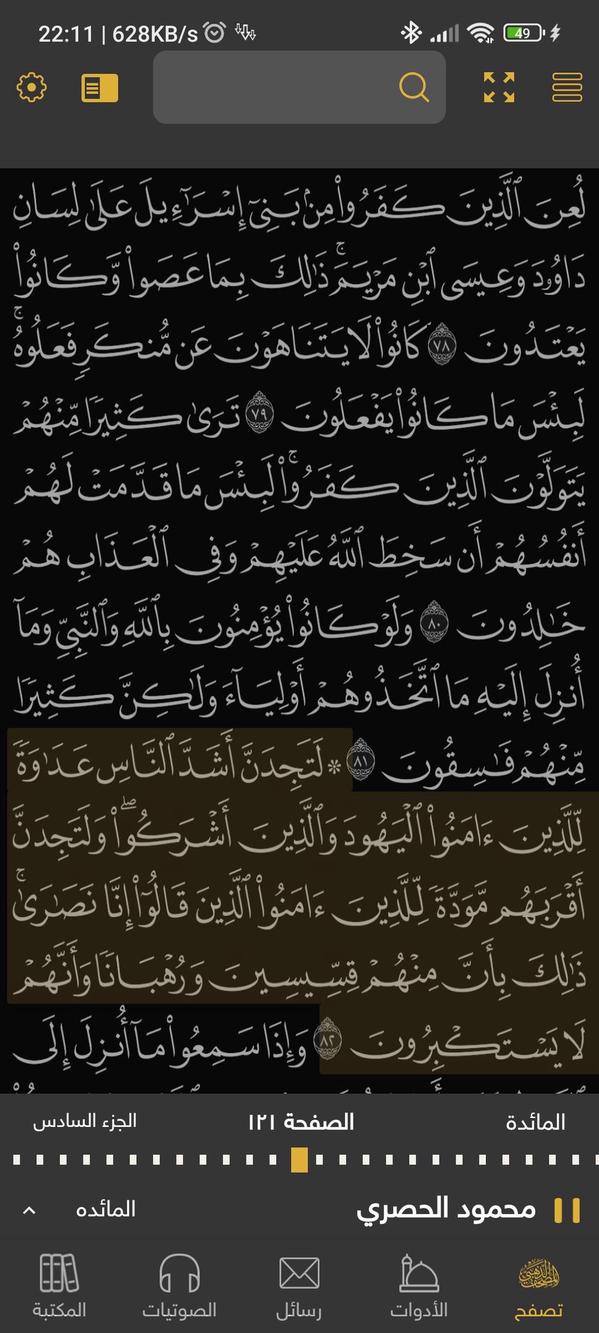 22:11 | 628KB/s
49
لُعِنَ ٱلَّذِينَ كَفَرُوا۟ مِنۢ بَنِىٓ إِسْرَٰٓءِيلَ عَلَىٰ لِسَانِ
دَاوُۥدَ وَعِيسَى ٱبْنِ مَرْيَمَ ۚ ذَٰلِكَ بِمَا عَصَوا۟ وَّكَانُوا۟
يَعْتَدُونَ ٧٨ كَانُوا۟ لَا يَتَنَاهَوْنَ عَن مُّنكَرٍ فَعَلُوهُ ۚ
لَبِئْسَ مَا كَانُوا۟ يَفْعَلُونَ ٧٩ تَرَىٰ كَثِيرًا مِّنْهُمْ
يَتَوَلَّوْنَ ٱلَّذِينَ كَفَرُوا۟ ۚ لَبِئْسَ مَا قَدَّمَتْ لَهُمْ
أَنفُسُهُمْ أَن سَخِطَ ٱللَّهُ عَلَيْهِمْ وَفِى ٱلْعَذَابِ هُمْ
خَٰلِدُونَ ٨٠ وَلَوْ كَانُوا۟ يُؤْمِنُونَ بِٱللَّهِ وَٱلنَّبِىِّ وَمَآ
أُنزِلَ إِلَيْهِ مَا ٱتَّخَذُوهُمْ أَوْلِيَآءَ وَلَٰكِنَّ كَثِيرًا
مِّنْهُمْ فَٰسِقُونَ ٨١ * لَتَجِدَنَّ أَشَدَّ ٱلنَّاسِ عَدَٰوَةً
لِّلَّذِينَ ءَامَنُوا۟ ٱلْيَهُودَ وَٱلَّذِينَ أَشْرَكُوا۟ ۖ وَلَتَجِدَنَّ
أَقْرَبَهُم مَّوَدَّةً لِّلَّذِينَ ءَامَنُوا۟ ٱلَّذِينَ قَالُوٓا۟ إِنَّا نَصَٰرَىٰ ۚ
ذَٰلِكَ بِأَنَّ مِنْهُمْ قِسِّيسِينَ وَرُهْبَانًا وَأَنَّهُمْ
لَا يَسْتَكْبِرُونَ ٨٢ وَإِذَا سَمِعُوا۟ مَآ أُنزِلَ إِلَى
المائدة الصفحة ١٢١ الجزء السادس
محمود الحصري المائده
تصفح الأدوات رسائل الصوتيات المكتبة